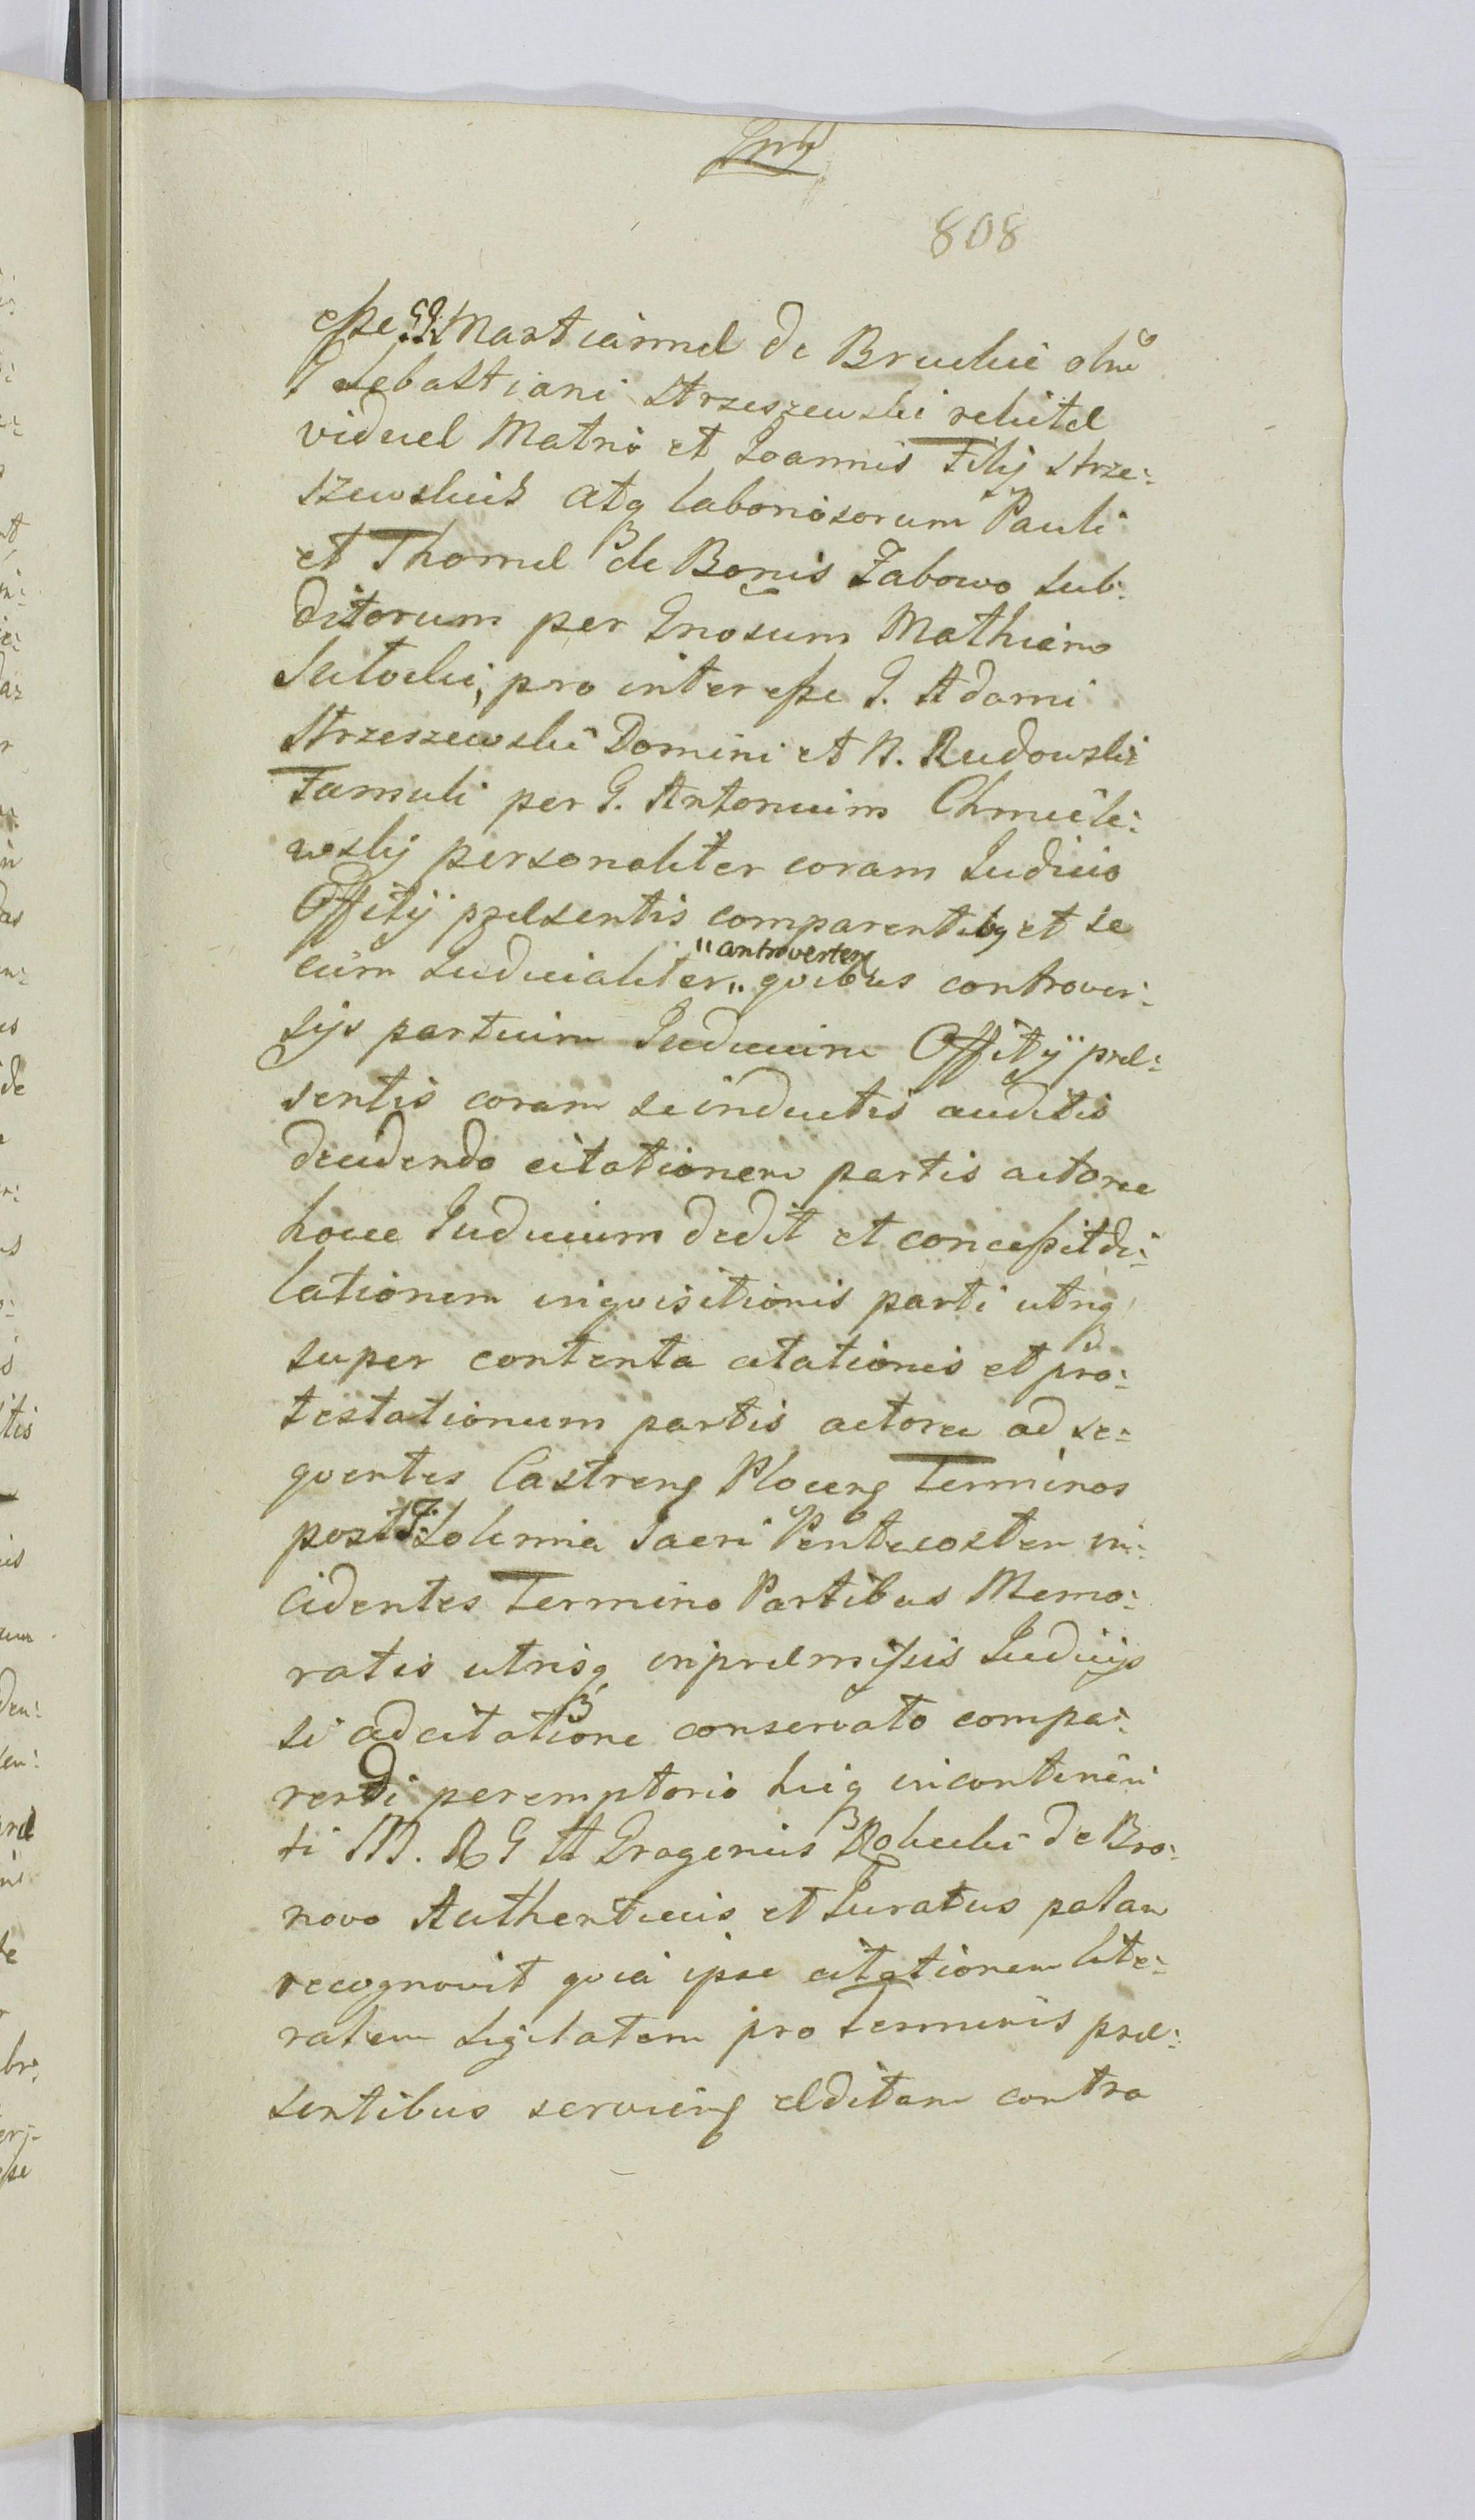 808
esse GG. Martiannæ de Brucki olim
G Sebastiani Strzeszewski relictæ
viduæ Matris et Joannis Filij Strze:
szewskich atq laboriosorum Pauli
et Thomæ de Bonis Żabowo sub:
ditorum per Gnosum Mathiam
Sutocki, pro interesse G. Adami
Strzeszewski Domini et N. Rudowski
Famuli per G. Antonium Chmiele:
wskij personaliter coram Judicio
Offitij præsentis comparentibq et se
cum Judicialiter "antrovertenq" qvibus controver:
sijs partium Judicium Offitij præ:
sentis coram se inductis auditis
decidendo citationem partis actoree
hocce Judicium dedit et concessit di:
lationem inqvisitionis parti utriq
super contenta citationis et pro:
testationum partis actoree ad se:
qventes Castrenq Plocenq Terminos
post F. Solemnia Sacri Pentecosten in:
cidentes Termino Partibus Memo:
ratis utrisq in præmissis Judicijs
si ad citatione conservato compa:
rendi peremptorio huiq in continen
ti M. R G A de Bro:
novo Authenticus et Juratus palam
recognovit qvia ipse citationem lite:
ralem sigilatam pro Terminis præ:
sentibus servienq æditam contra